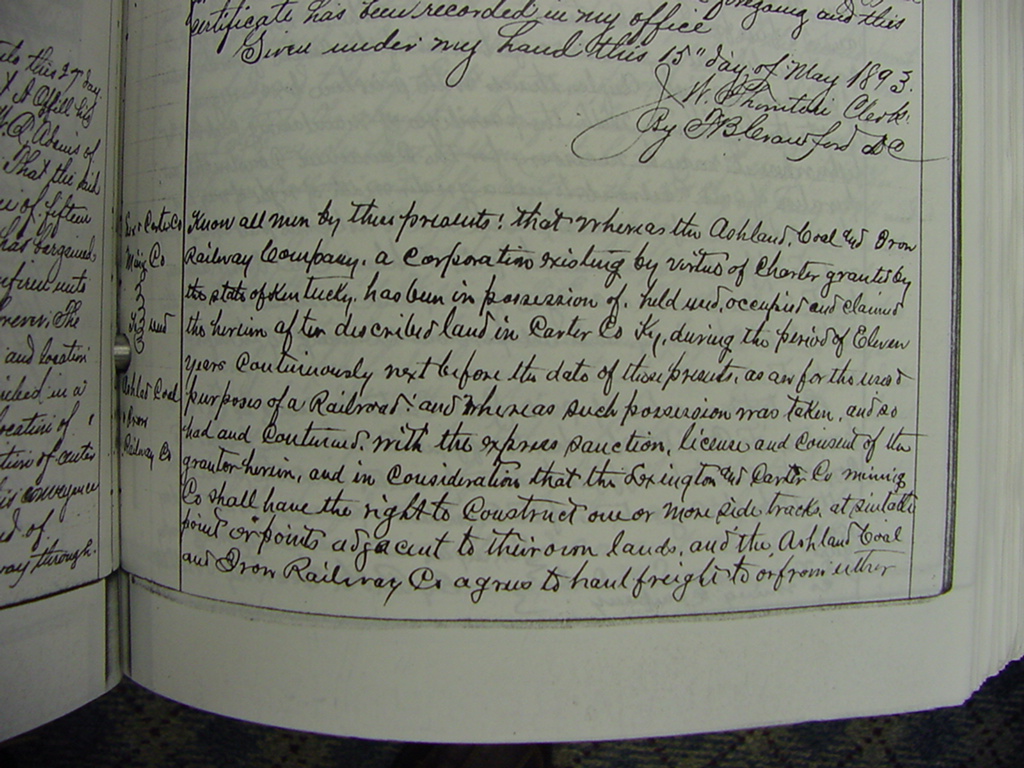 to this 27 day
of
That the said
of fifteen
has bargained
and location
in a
location of
of center
his conveyance
of
way through.
foregoing and this
certificate has been recorded in my office
Given under my hand this 15" day of May 1893.
J. W. Thornton Clerk
By Crawford DC
Lex & Carter Co
Ming Co
To } Deed
Ashland Coal
& Iron
Railway Co
Know all men by these presents: that whereas the Ashland, Coal and Iron
Railway Company, a corporation existing by virtue of Charter granted by
the state of Kentucky, has been in possession of, held used, occupied and claimed
the herein after described land in Carter Co Ky, during the period of Eleven
years continuously next before the date of these presents, as an for the uses &
purposes of a Railroad: and Whereas such possession was taken, and so
had and continued, with the express sanction, license and consent of the
grantor herein, and in consideration that the Lexington and Carter Co mining
Co shall have the right to construct one or more side tracks, at suitable
point or points adjacent to their own lands, and the, Ashland Coal
and Iron Railway Co agrees to haul freight to or from either